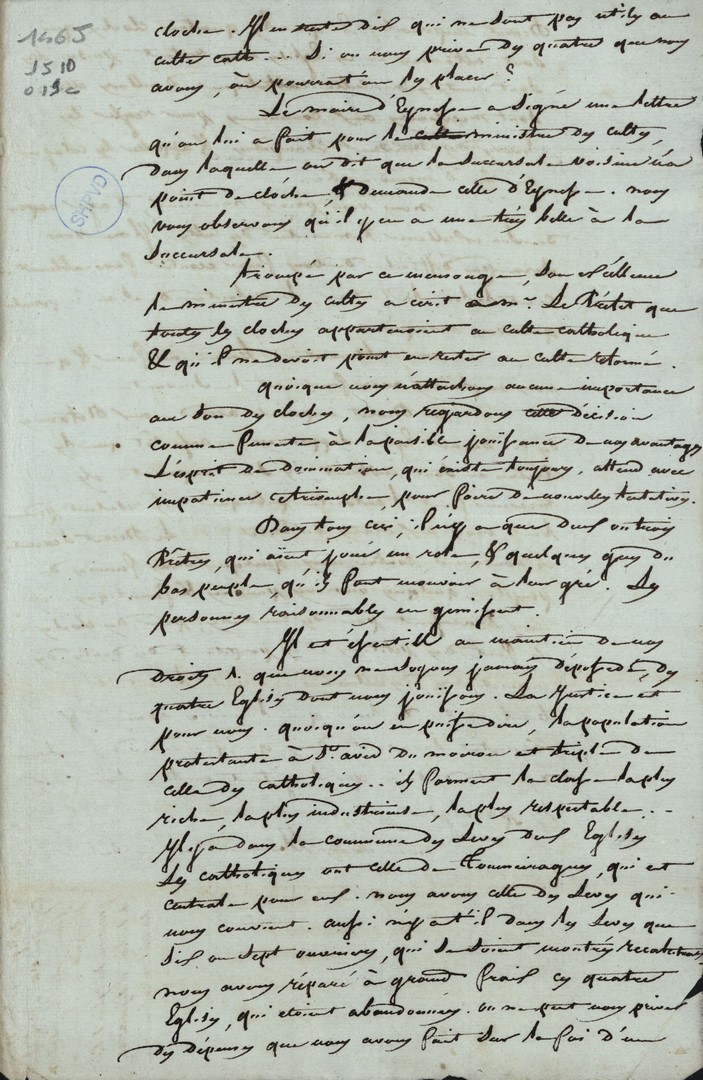 1465
1510
019c
SHPVD
cloche. Il en reste dix qui ne sont pas utiles au
culte cath... Si on nous prive des quatre que nous
avons, où pourrat on les placer?
Le maire d'Eynesse a signé une lettre
qu'on lui a fait pour le ministre des cultes,
dans laquelle on dit que la succursale voisine n'a
point de cloche, & demande celle d'Eynesse. nous
vous observons qu'il y en a une très belle à la
succursale.
trompée par ce mensonge, Son excellence
le ministre des cultes a écrit à mr. Le Préfet que
toutes les cloches appartenoient au culte catholique
& qu'il ne devoit point en rester au culte reformé.
quoique nous n'attachons aucune importance
au son des cloches, nous regardons cette décision
comme funeste à la paisible jouissance de nos avantages
L'esprit de domination, qui existe toujours, attend avec
impatience ce triomphe, pour faire de nouvelles tentatives.
Dans tous ceci, il n'y a que deux ou trois
Prêtres, qui aient joué un role, & quelques gens du
bas peuple, qu'ils font mouvoir à leur gré. Les
personnes raisonnables en gemissent.
Il est essentiel au maintien de nos
droits 1. que nous ne soyons jamais dépossedés des
quatre Eglises dont nous jouissons. La justice est
pour nous. quoiqu'on en puisse dire, la population
protestante à St. avid du moiron est triple de
celle des catholiques.. ils forment la classe la plus
riche, la plus industrieuse, la plus respectable...
Il y a dans la commune des Leves deux Eglises
Les catholiques ont celle de Toumeiragues, qui est
centrale pour eux. nous avons celle des Leves qui
nous convient. aussi n'y at'il dans les Leves que
six ou sept ouvriers, qui se soient montrés recalcitrans,
nous avons réparé à grand frais ces quatre
Eglises, qui etoient abandonnées. on ne peut nous priver
des dépenses que nous avons fait sur la foi d'une